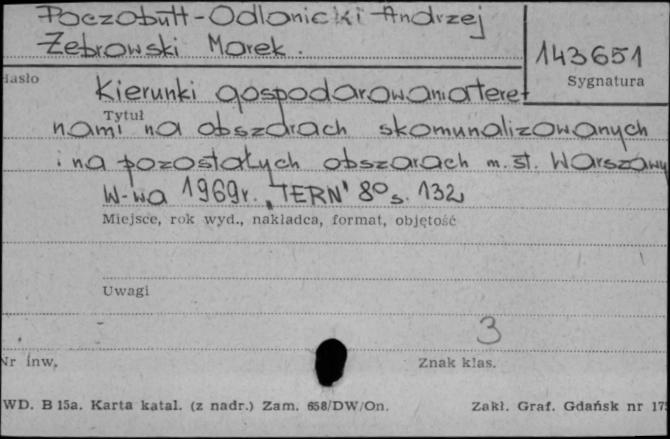 Poczobutt-Odlanicki Andrzej
Żebrowski Marek.
143651
Hasło
Sygnatura
Kierunki gospodarowania tere-
Tytuł
nami na obszarach skomunalizowanych
i na pozostałych obszarach m. st. Warszawy
W-wa 1969r. "TERN" 8° s. 132
Miejsce, rok wyd., nakładca, format, objętość
Uwagi
3
Nr inw.
Znak klas.
WD. B 15a. Karta katal. (z nadr.) Zam. 658/DW/On.
Zakł. Graf. Gdańsk nr